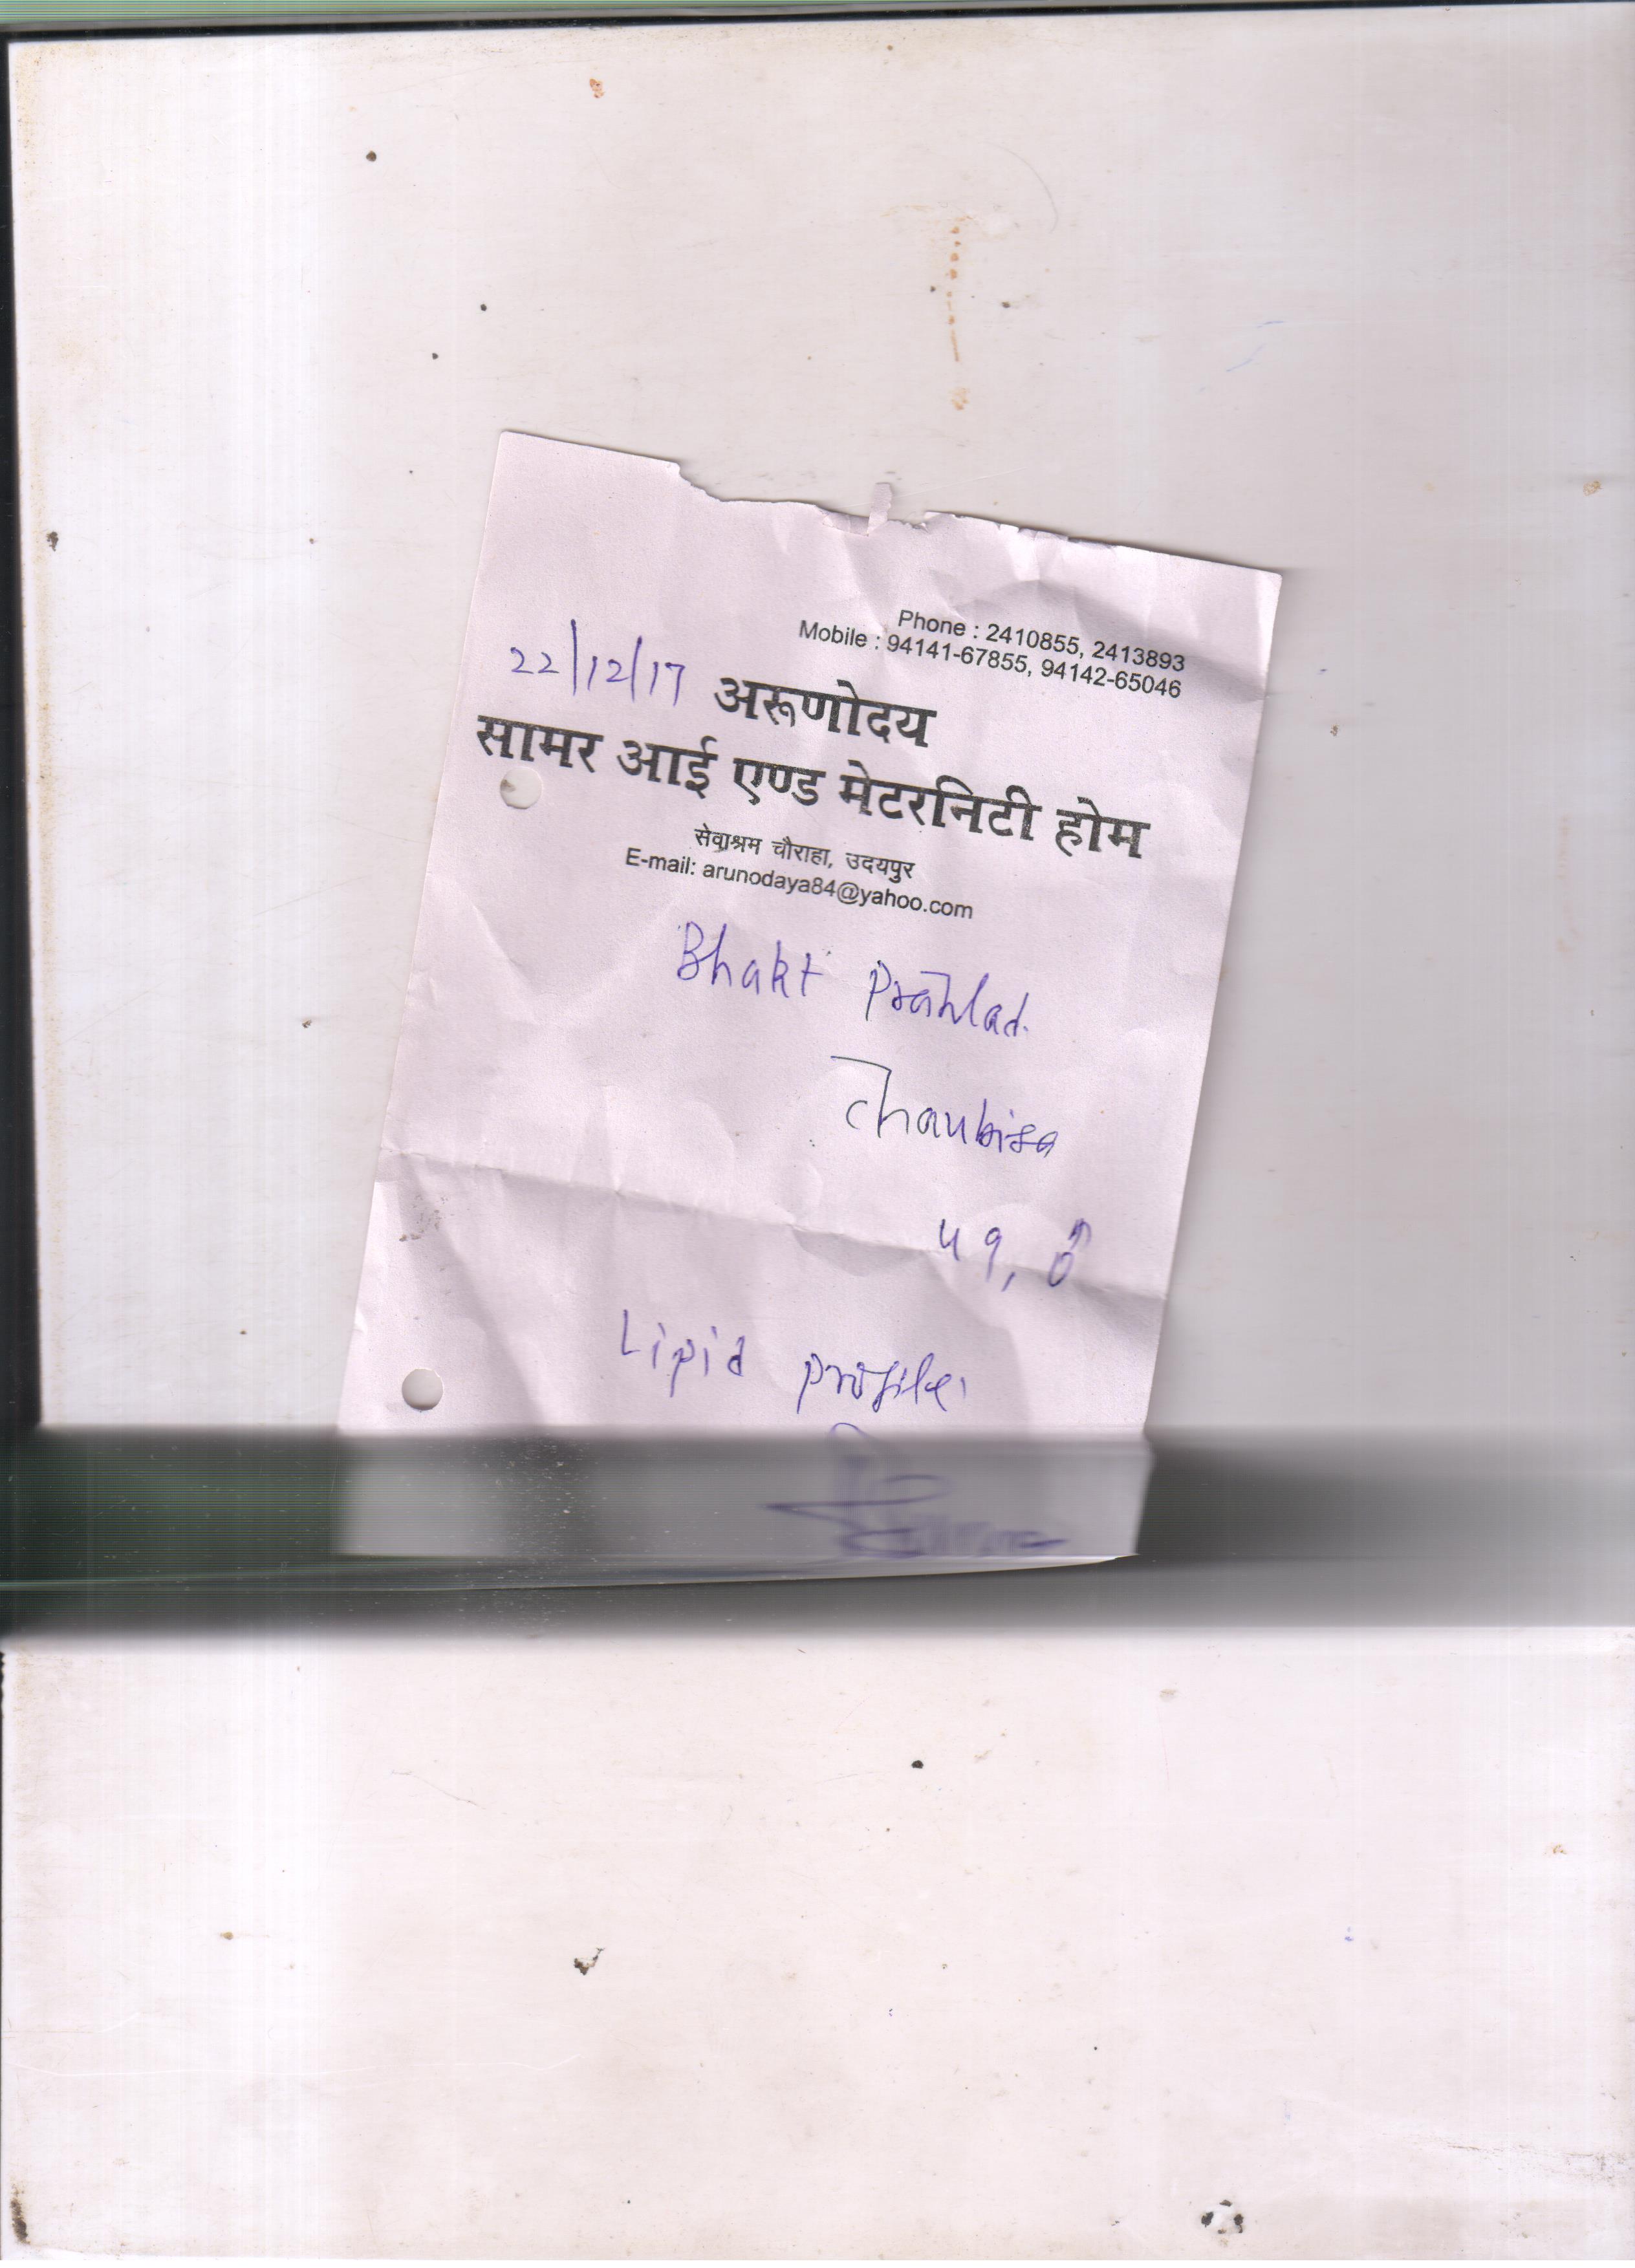 Phone : 2410855, 2413893
Mobile : 94141-67855, 94142-65046
22/12/17
अरूणोदय
सामर आई एण्ड मेटरनिटी होम
सेवाश्रम चौराहा, उदयपुर
E-mail: arunodaya84@yahoo.com
Bhakt Prahlad
Chaubisa
49, ♂
Lipid profile